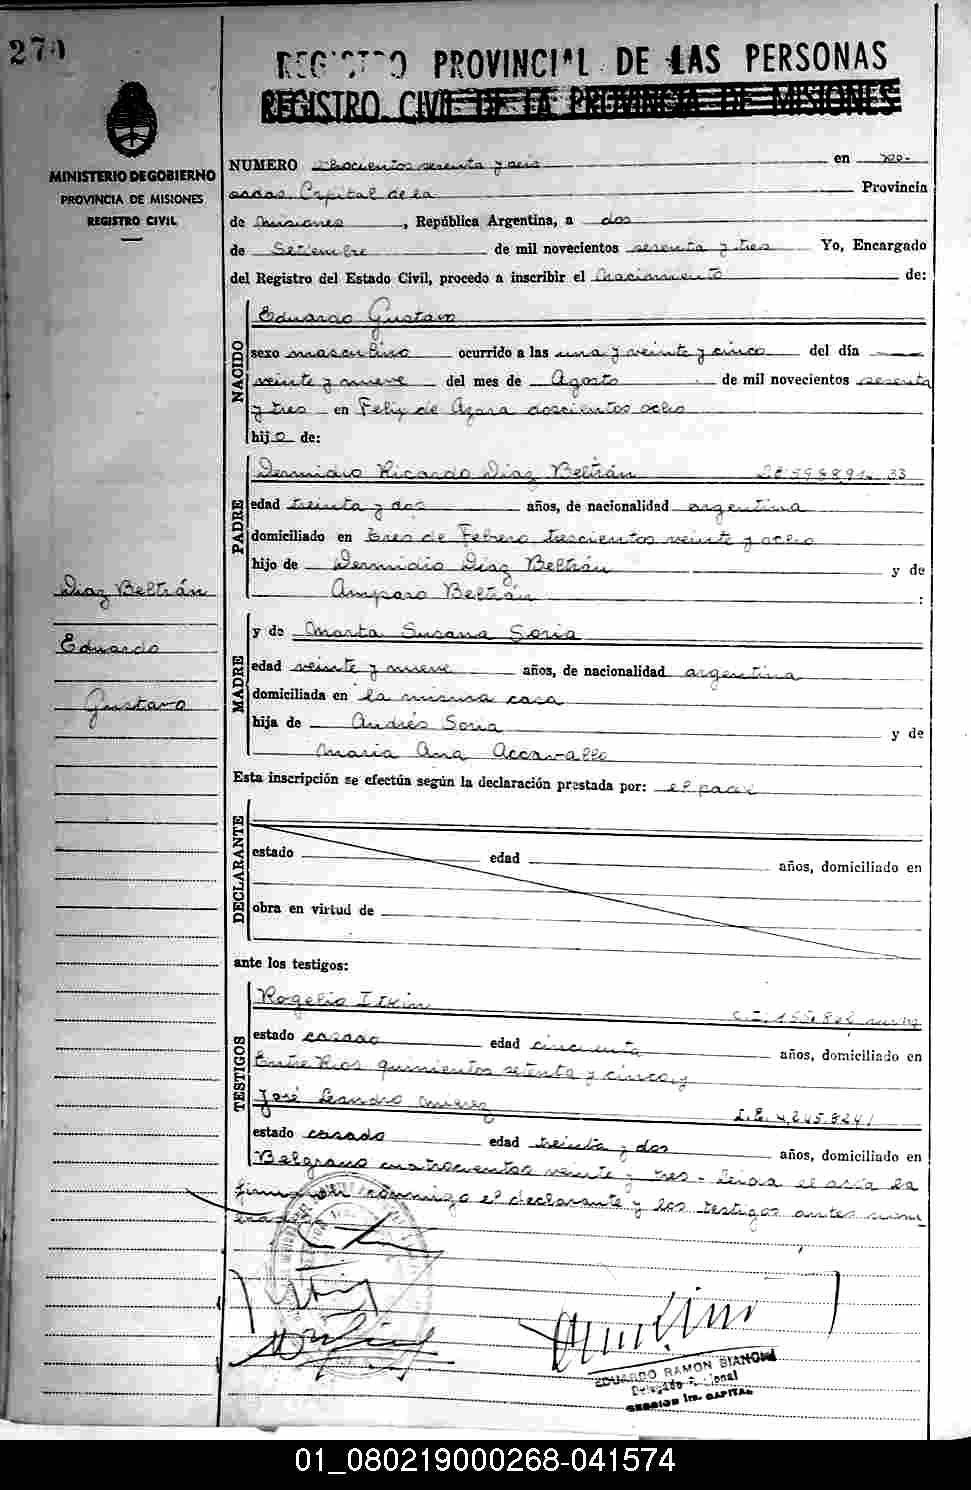 270
REGISTRO PROVINCIAL DE LAS PERSONAS
REGISTRO CIVIL DE LA PROVINCIA DE MISIONES
MINISTERIO DE GOBIERNO
PROVINCIA DE MISIONES
REGISTRO CIVIL
NUMERO Doscientos sesenta y seis en Po-
sadas Capital de la Provincia
de Misiones, República Argentina, a dos
de Setiembre de mil novecientos sesenta y tres Yo, Encargado
del Registro del Estado Civil, procedo a inscribir el Nacimiento de:
NACIDO
Eduardo Gustavo
sexo masculino ocurrido a las una y veinte y cinco del día
veinte y nueve del mes de Agosto de mil novecientos sesenta
y tres en Felix de Azara doscientos ocho
hijo de:
PADRE
Dermidio Ricardo Diaz Beltrán
edad treinta y dos años, de nacionalidad argentina
domiciliado en tres de Febrero trescientos veinte y ocho
hijo de Dermidio Diaz Beltrán y de
Amparo Beltrán :
Diaz Beltrán
Eduardo
Gustavo
MADRE
y de Marta Susana Soria
edad veinte y nueve años, de nacionalidad argentina
domiciliada en la misma casa
hija de Andrés Soria y de
Maria Ana Accavallo
Esta inscripción se efectúa según la declaración prestada por: el padre
DECLARANTE
estado edad años, domiciliado en
obra en virtud de
ante los testigos:
TESTIGOS
Rogelio Itkin
estado casado edad cincuenta años, domiciliado en
Entre Rios quinientos setenta y cinco y
José Leandro
estado casado edad treinta y dos años, domiciliado en
Belgrano cuatrocientos veinte y tres - leida el acta la
firman conmigo el declarante y los testigos antes nom
brados
EDUARDO RAMON BIANCHI
Delegado Seccional
SECCION 1ra. CAPITAL
01_080219000268-041574